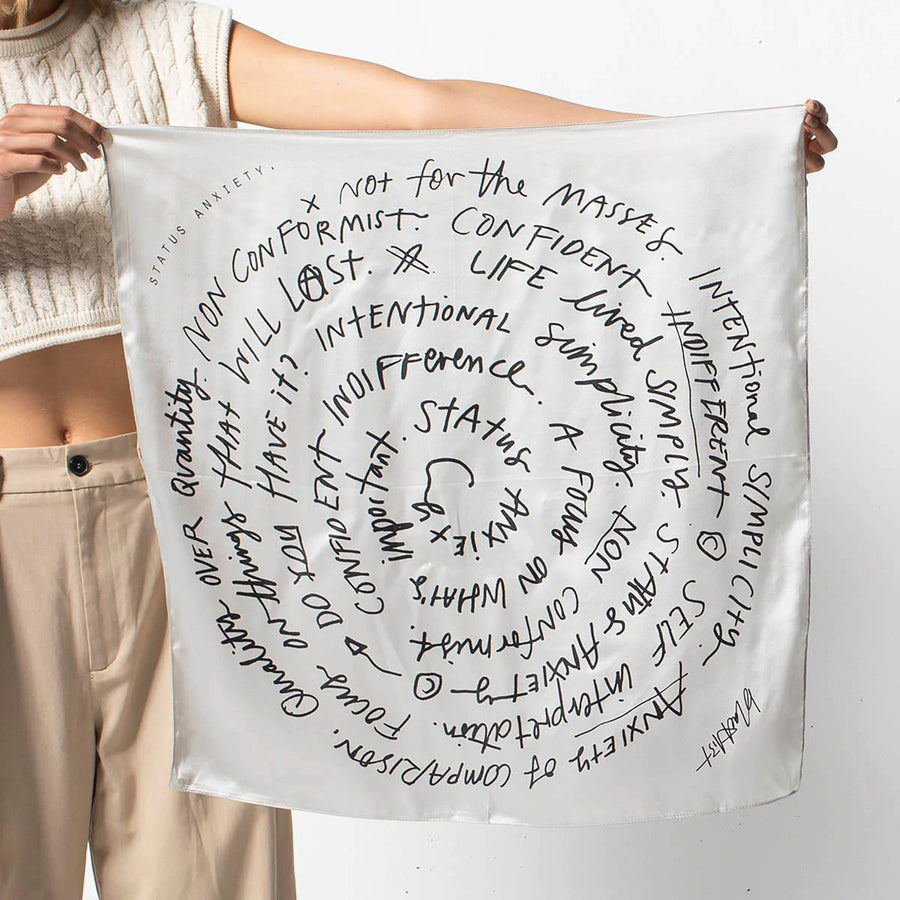 STATUS ANXIETY.
x Not for the MASSES. INTENTIONAL SIMPLICITY.
ANXIETY of COMPARISON.
Quality OVER Quantity. NON CONFORMIST. CONFIDENT INDIFFERENT ©
SELF interpretation. FOCUS ON things that WILL LAST.
LIFE lived SIMPLY. STATUS ANXIETY ©
DO YOU HAVE IT? INTENTIONAL simplicity NON CONFORMIST.
CONFIDENT INDIFFerence. A FOCUS ON WHAT'S important.
STATUS ANXIETY